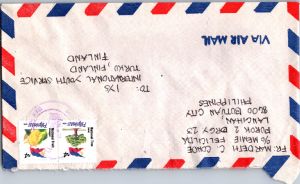 FR: NARDETH C. CONDE
96 MEME FELICILDA
PUROK 2 BRGY 25
LANGIHAN
8600 BUTUAN CITY
PHILIPPINES
TO: IYS
INTERNATIONAL YOUTH SERVICE
TURKU, FINLAND
FINLAND
VIA AIR MAIL
Pilipinas
Pilipinas